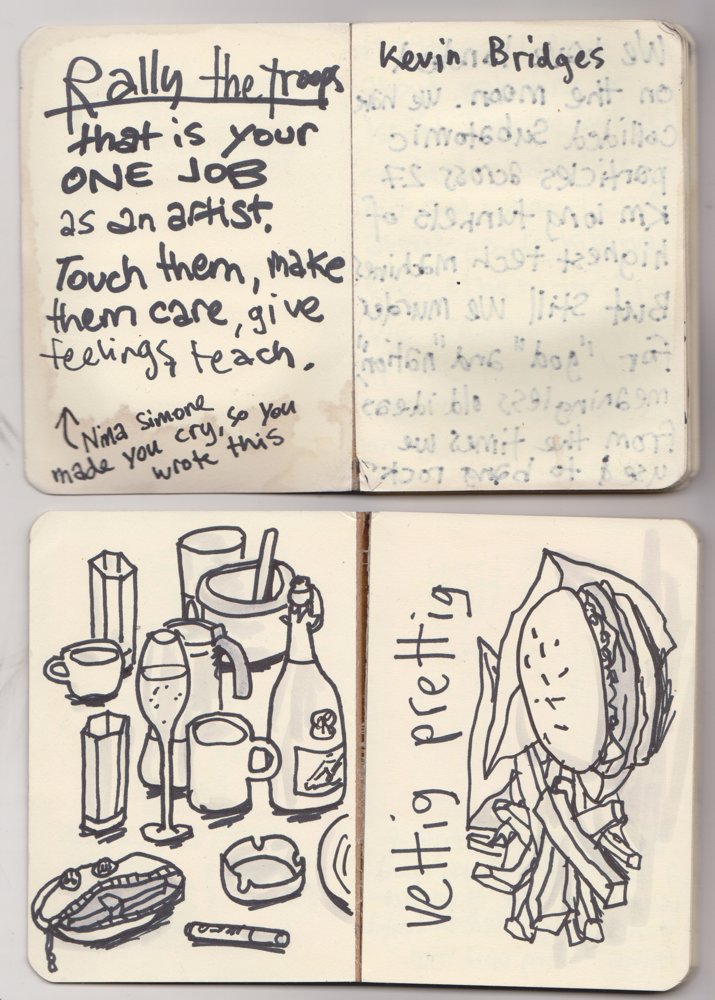 Rally the troops
that is your
ONE JOB
as an artist.
Touch them, make
them care, give
feelings, teach.
↑ Nina Simone
made you cry, so you
wrote this
Kevin Bridges
We
on the moon. We have
collided Subatomic
particles across 27
Km long tunnels of
highest tech machines
But still we murder
for "god" and "nation",
meaningless old ideas
from the times we
used to bang rocks
vettig prettig